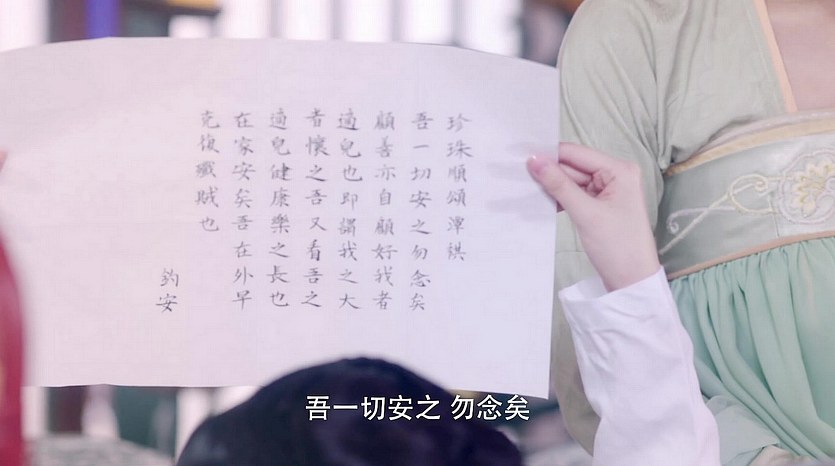 珍珠順頌潭祺
吾一切安之勿念矣
顧善亦自顧好我者
適皃也即謁我之大
者懷之吾又看吾之
適皃健康樂之長也
在家安矣吾在外早
克復殲賊也
鈞安
吾一切安之 勿念矣